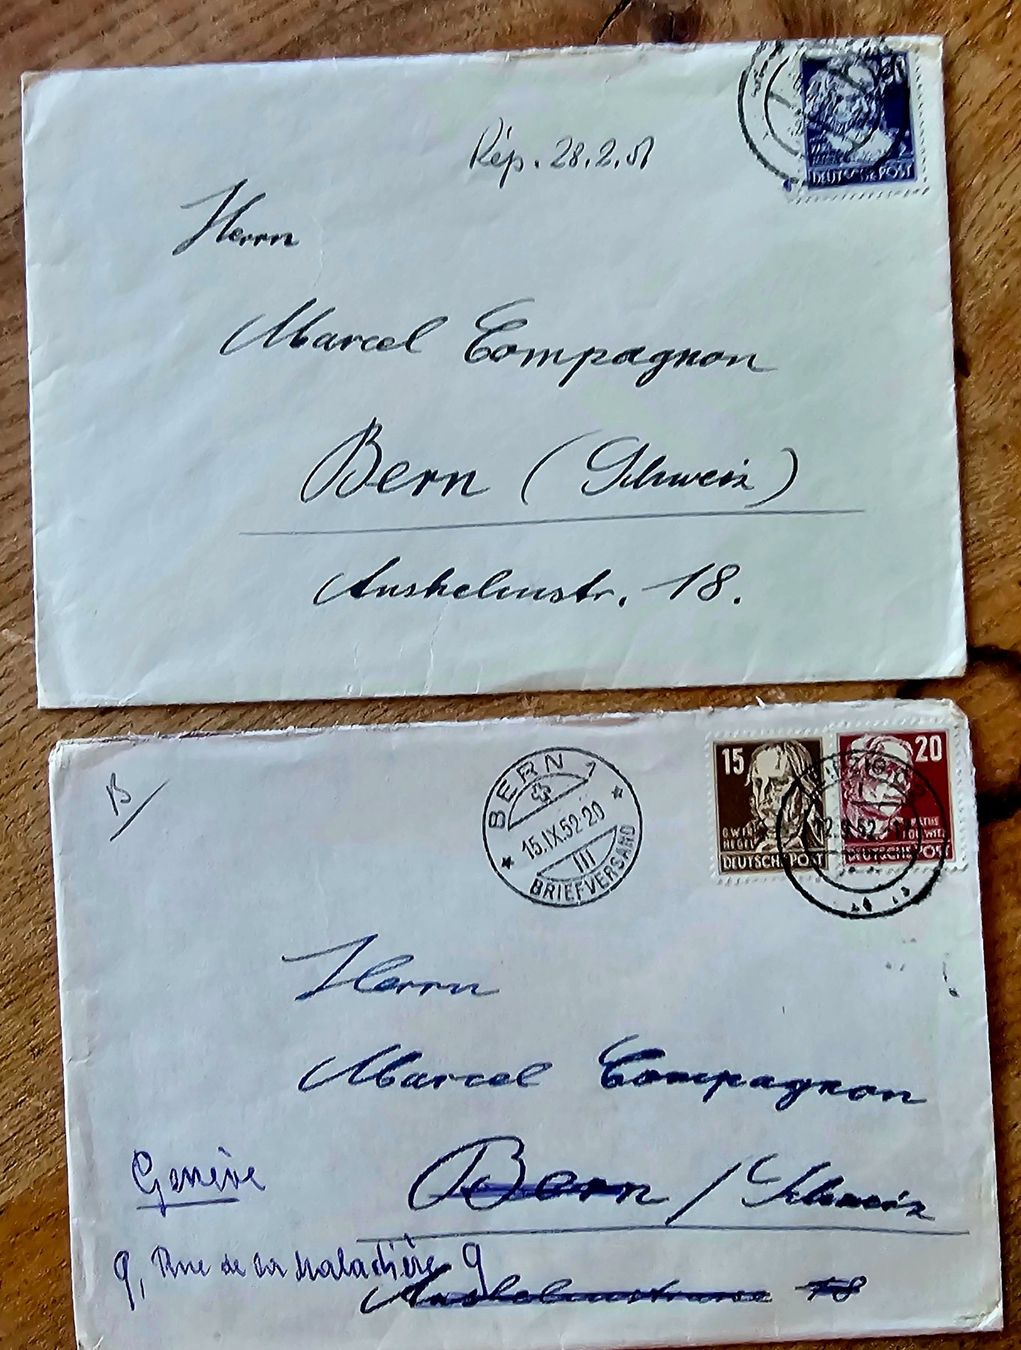 Rép. 28.2.51
DEUTSCHE POST
Herrn
Marcel Compagnon
Bern (Schweiz)
Anshelmstr. 18.
B
BERN 1
15.IX.52-20
III
BRIEFVERSAND
15
G.W.F.
HEGEL
DEUTSCHE POST
20
KÄTHE
KOLLWITZ
DEUTSCHE POST
Herrn
Marcel Compagnon
Genève
Bern / Schweiz
9, Rue de la Maladière 9
Anshelmstrasse 18